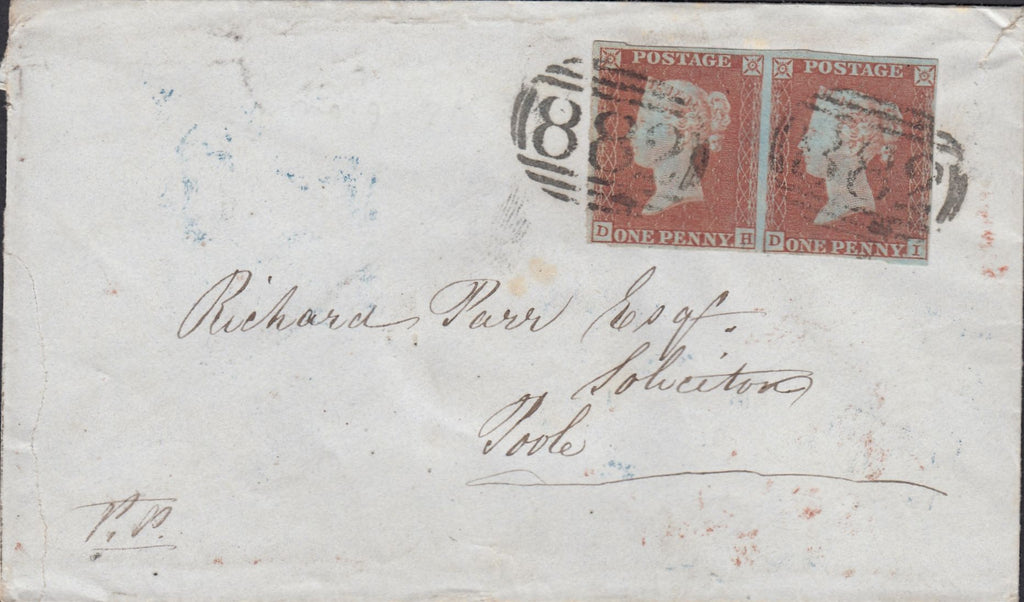 POSTAGE POSTAGE
882
D ONE PENNY H D ONE PENNY I
Richard Parr Esqr.
Solicitor
Poole
P.P.